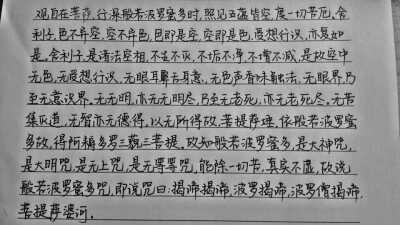 观自在菩萨,行深般若波罗蜜多时,照见五蕴皆空,度一切苦厄,舍
利子,色不异空,空不异色,色即是空,空即是色,受想行识,亦复如
是,舍利子,是诸法空相,不生不灭,不垢不净,不增不减,是故空中
无色,无受想行识,无眼耳鼻舌身意,无色声香味触法,无眼界,乃
至无意识界,无无明,亦无无明尽,乃至无老死,亦无老死尽,无苦
集灭道,无智亦无得,以无所得故,菩提萨埵,依般若波罗蜜
多故,得阿耨多罗三藐三菩提,故知般若波罗蜜多,是大神咒,
是大明咒,是无上咒,是无等等咒,能除一切苦,真实不虚,故说
般若波罗蜜多咒,即说咒曰:揭谛揭谛,波罗揭谛,波罗僧揭谛,
菩提萨婆诃。